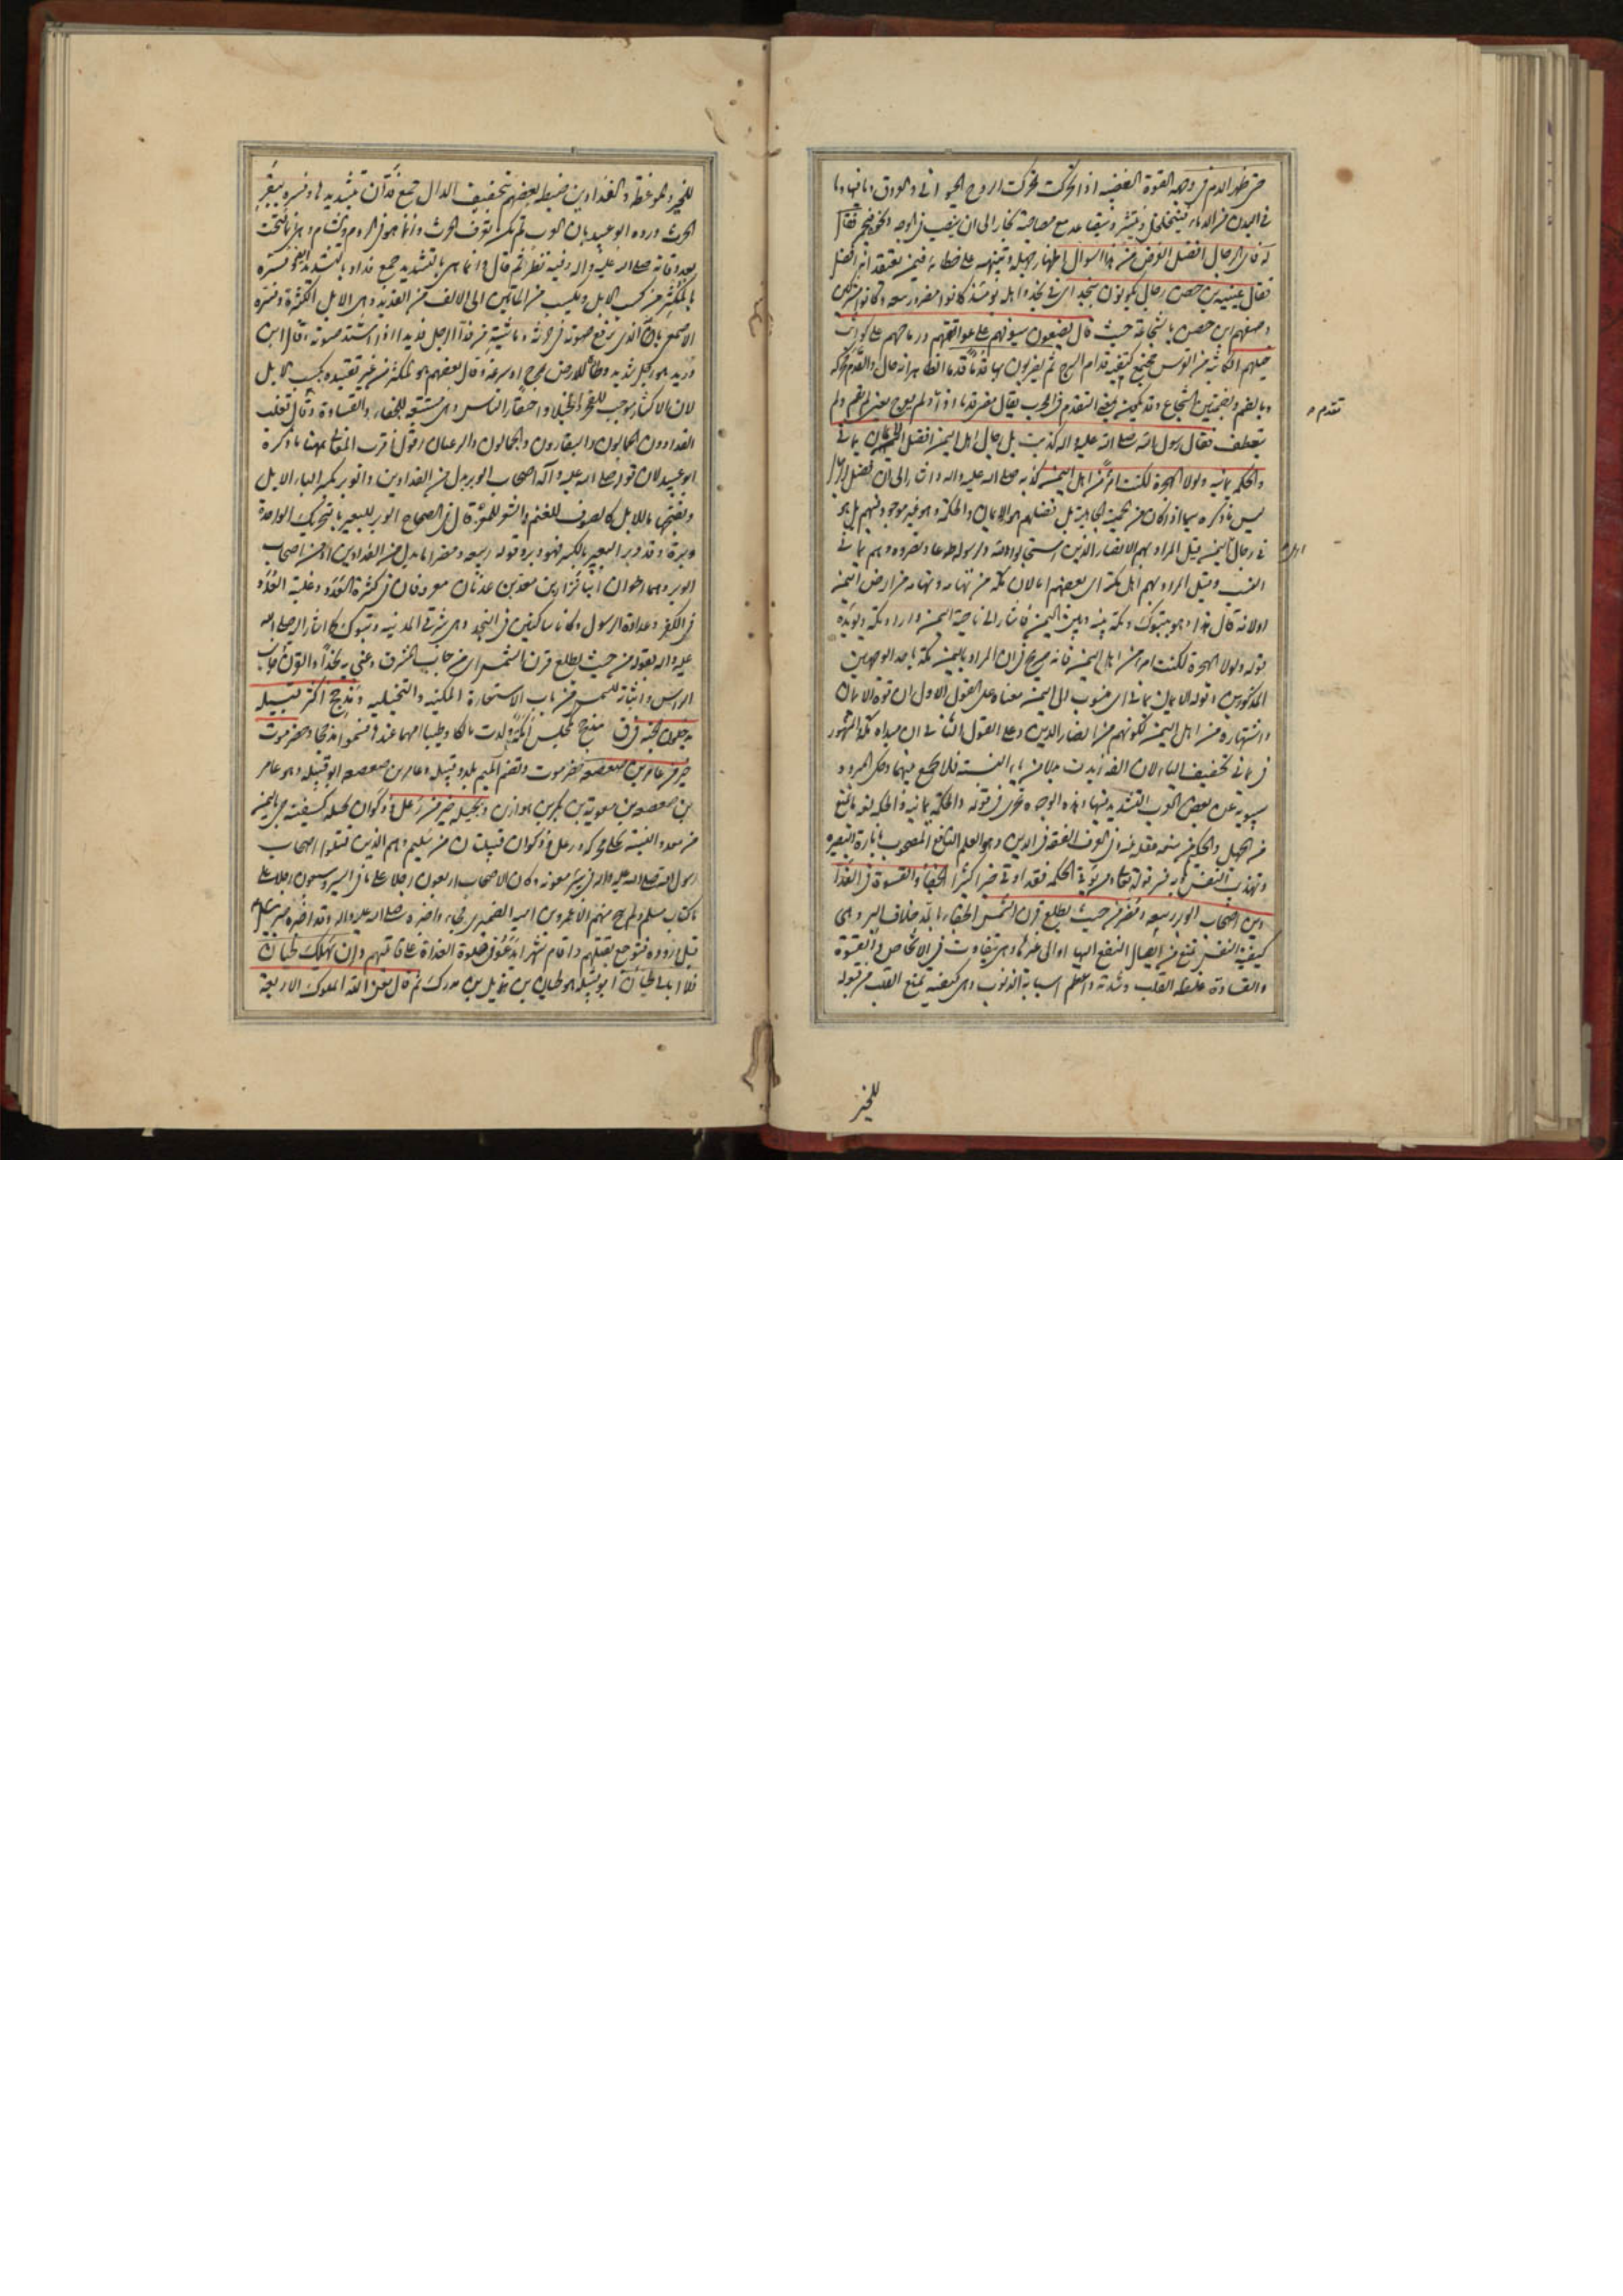 حتى ظهر الدم في وجهه القوة الغضبية اذا تحركت تحركت الروح الحيوانى والعروق وما فيها وما
في البدن من الدماء فيتخلخل وينتشر ويتصاعد مع مصاحبة بخار الى ان ينصب في الوجه
له فاى الرجال افضل الغرض من هذا السوال اظهار جهله وتنبيهه على خطائه فيمن يعتقد انه افضل
فقال عيينة بن حصن رجال يكونون بنجد اى في نجد واهله يومئذ كانوا مضر وربيعة وكانوا مشركين
وصفهم ابن حصن بالشجاعة حيث قال يضعون سيوفهم على عواتقهم ورماحهم على كواثب
خيلهم الكاثبة من الفرس مجتمع كتفيه قدام السرج ثم يضربون بها قدما قدما الظاهر انه حال والقدم محركة
وبالضم وبضمتين الشجاع وقد يكون بمعنى التقدم في الحرب يقال مضى قدما اذا لم يعرج يعنى لم يقم ولم
ينعطف فقال رسول الله صلى الله عليه واله كذبت بل رجال اهل اليمن افضل الايمان يمانى
والحكمة يمانية ولولا الهجرة لكنت امرءا من اهل اليمن كذبه صلى الله عليه واله واشار الى ان فضل الرجال
ليس ما ذكره سيما اذا كان من حمية الجاهلية بل فضلهم هو الايمان والحكمة وهو غير موجود فيهم بل هو
في رجال اليمن قيل المراد بهم الانصار الذين استجابوا لله ولرسوله طوعا ونصروه وهم يمانى
النسب وقيل المراد بهم اهل مكة اى بعضهم اما لان مكة من تهامة وتهامة من ارض اليمن
اولانه قال هذا وهو بتبوك ومكة بينه وبين اليمن فاشار الى ناحية اليمن واراد مكة ويؤيده
قوله ولولا الهجرة لكنت امرءا من اهل اليمن فانه صريح في ان المراد باليمن مكة باحد الوجهين
المذكورين وقوله الايمان يمانى اى منسوب الى اليمن معناه على القول الاول ان قوة الايمان
واشتهاره من اهل اليمن لكونهم من انصار الدين وعلى القول الثانى ان مبداه مكة المشهور
في يمانى تخفيف الياء لان الفه زيدت بدلا من ياء النسبة فلا يجمع بينهما وحكى المبرد و
سيبويه عن بعض العرب التشديد فيها وهذه الوجوه تجرى في قوله والحكمة يمانية والحكمة لغة ما يمنع
من الجهل والحكيم من منعه عقله منه وفي العرف الفقه في الدين وهو العلم النافع المصحوب بانارة البصيرة
وتهذيب النفس وبه فسر قوله تعالى ومن يؤتى الحكمة فقد اوتى خيرا كثيرا الجفاء والقسوة في الفدادين
اصحاب الوبر ربيعة ومضر من حيث يطلع قرن الشمس الجفاء بالمد خلاف البر وهى
كيفية للنفس تمنع من ايصال النفع اليها او الى غيرها وهى تتفاوت في الاشخاص والقسوة
والقساوة غلظة القلب وشدته واعظم اسبابه الذنوب وهى كيفية تمنع القلب من قبوله
تقدم
للخير
للخير والموعظة والفدادين ضبطه بعضهم بتخفيف الدال جمع فدّان بتشديدها وفسره ببقر
الحرث ورده ابو عبيد بان العرب لم تكن تعرف الحرث وانما هو في الروم والشام وهى انما فتحت
بعد وفاته صلى الله عليه واله وفيه نظر ثم قال وانما هى بالتشديد جمع فداد بالتشديد ايضا وفسره
بالمكثر من كسب الابل ويكسب من المأتين الى الالف من الفديد وهى الابل الكثيرة وفسره
الاصمعى بانه الذى يرفع صوته في حرثه وماشيته من فدّ الرجل فديدا اذا اشتد صوته وقال ابن
دريد هو رجل شديد وطئا للارض لمرح او سرعة وقال بعضهم هو المكثر من غير تقييده بكسب الابل
لان الاكثار موجب للفخر والخيلاء واحتقار الناس وهى مستتبعة للجفاء والقساوة وقال ثعلب
الفدادون الجمالون والبقارون والحمارون والرعيان اقول اقرب المعانى هنا ما ذكره
ابو عبيد لان قوله صلى الله عليه وآله اصحاب الوبر بدل من الفدادين والوبر بكسر الباء الابل
وبفتحها للابل كالصوف للغنم والشعر للمعز قال في الصحاح الوبر للبعير بالتحريك الواحدة
وبرة وقد وبر البعير بالكسر فهو وبر وقوله ربيعة ومضر اما بدل من الفدادين او من اصحاب
الوبر وهما اخوان ابنا نزار بن معد بن عدنان معروفان في كثرة العدد وغلبة العدد
في الكفر وعداوة الرسول وكانا ساكنين في النجد وهى شرقى المدينة وتبوك كما اشار اليه صلى الله
عليه واله بقوله من حيث يطلع قرن الشمس اى من جانب المشرق وعنى به نجدا والقرن جانب
الراس واثباته للشمس من باب الاستعارة المكنية والتخييلية ومذحج اكثر قبيلة
يدخلون الجنة مذحج كمجلس اكمة ولدت مالكا وطيبا امهما عندها فسموا مذحجا وحضرموت
خير من عامر بن صعصعة حضرموت وتضم الميم بلد وقبيلة وعامر بن صعصعة ابو قبيلة وهو عامر
بن صعصعة بن معوية بن بكر بن هوازن وبجيلة خير من رعل وذكوان بجيلة كسفينة حى باليمن
من معد والنسبة بجلى محركة ورعل وذكوان قبيلتان من سليم وهم الذين قتلوا اصحاب
رسول الله صلى الله عليه واله في بئر معونة وكان الاصحاب اربعون رجلا على ما في السير وسبعون رجلا على
ما كتاب مسلم ولم ينج منهم الا عمرو بن امية الضميرى فجاء واخبره صلى الله عليه واله وقد اخبره جبرئيل
قبل وروده فتوجع بقتلهم واقام شهرا يدعو في صلوة الغداة على قاتليهم وان يهلك لحيان
فلا ابالى لحيان ابو قبيلة هو لحيان بن هذيل بن مدركة ثم قال لعن الله الملوك الاربعة